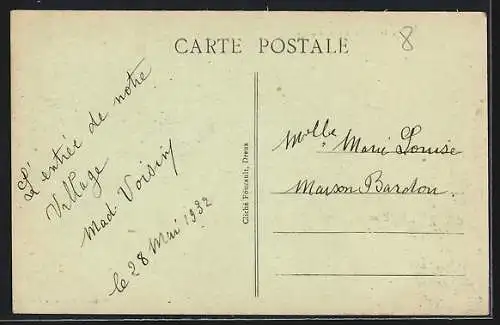 CARTE POSTALE
8
L'entrée de notre
Village
Mad. Voisin
le 28 Mai 1932
Cliché Foucault, Dreux
Melle Marie Louise
Maison Bardou.